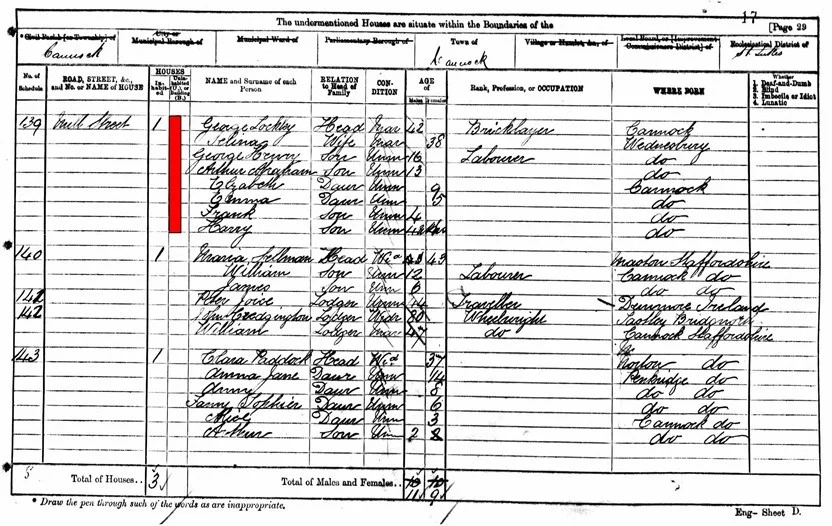 17
The undermentioned Houses are situate within the Boundaries of the [Page 29
Civil Parish [or Township] of City or Municipal Borough of Municipal Ward of Parliamentary Borough of Town of Village or Hamlet, &c., of Local Board, or [Improvement Commissioners District] of Ecclesiastical District of
Cannock Cannock St Lukes
No. of Schedule ROAD, STREET, &c., and No. or NAME of HOUSE HOUSES Inhabited Uninhabited (U.), or Building (B.) NAME and Surname of each Person RELATION to Head of Family CONDITION AGE of Males Females Rank, Profession, or OCCUPATION WHERE BORN Whether 1. Deaf-and-Dumb 2. Blind 3. Imbecile or Idiot 4. Lunatic
139 Mill Street 1 George Lockley Head Mar 42 Bricklayer Cannock
Selina Wife Mar 38 Wednesbury
George Henry Son Unm 16 Labourer do
Arthur Abraham Son Unm 13 do
Elizabeth Daur Unm 9 Cannock
Emma Daur Unm 5 do
Frank Son Unm 4 do
Harry Son Unm do
140 1 Maria Head Wid 43 Staffordshire
William Son Unm 12 Labourer Cannock do
James Son Unm 6 do do
141 Peter Joice Lodger Unm Traveller Dunmore Ireland
142 Wm Lodger Widr 80 Wheelwright
William Lodger Mar 47 do Cannock Staffordshire
143 1 Clara Head Wid 37 Norton do
Anna Jane Daur Unm 14 Penkridge do
Anny Daur Unm 8 do do
Fanny Daur Unm 6 do do
Alice Daur Unm 3 Cannock do
Arthur Son Unm 2 do do
5 Total of Houses.. 3 Total of Males and Females.. 11 9
* Draw the pen through such of the words as are inappropriate. Eng- Sheet D.